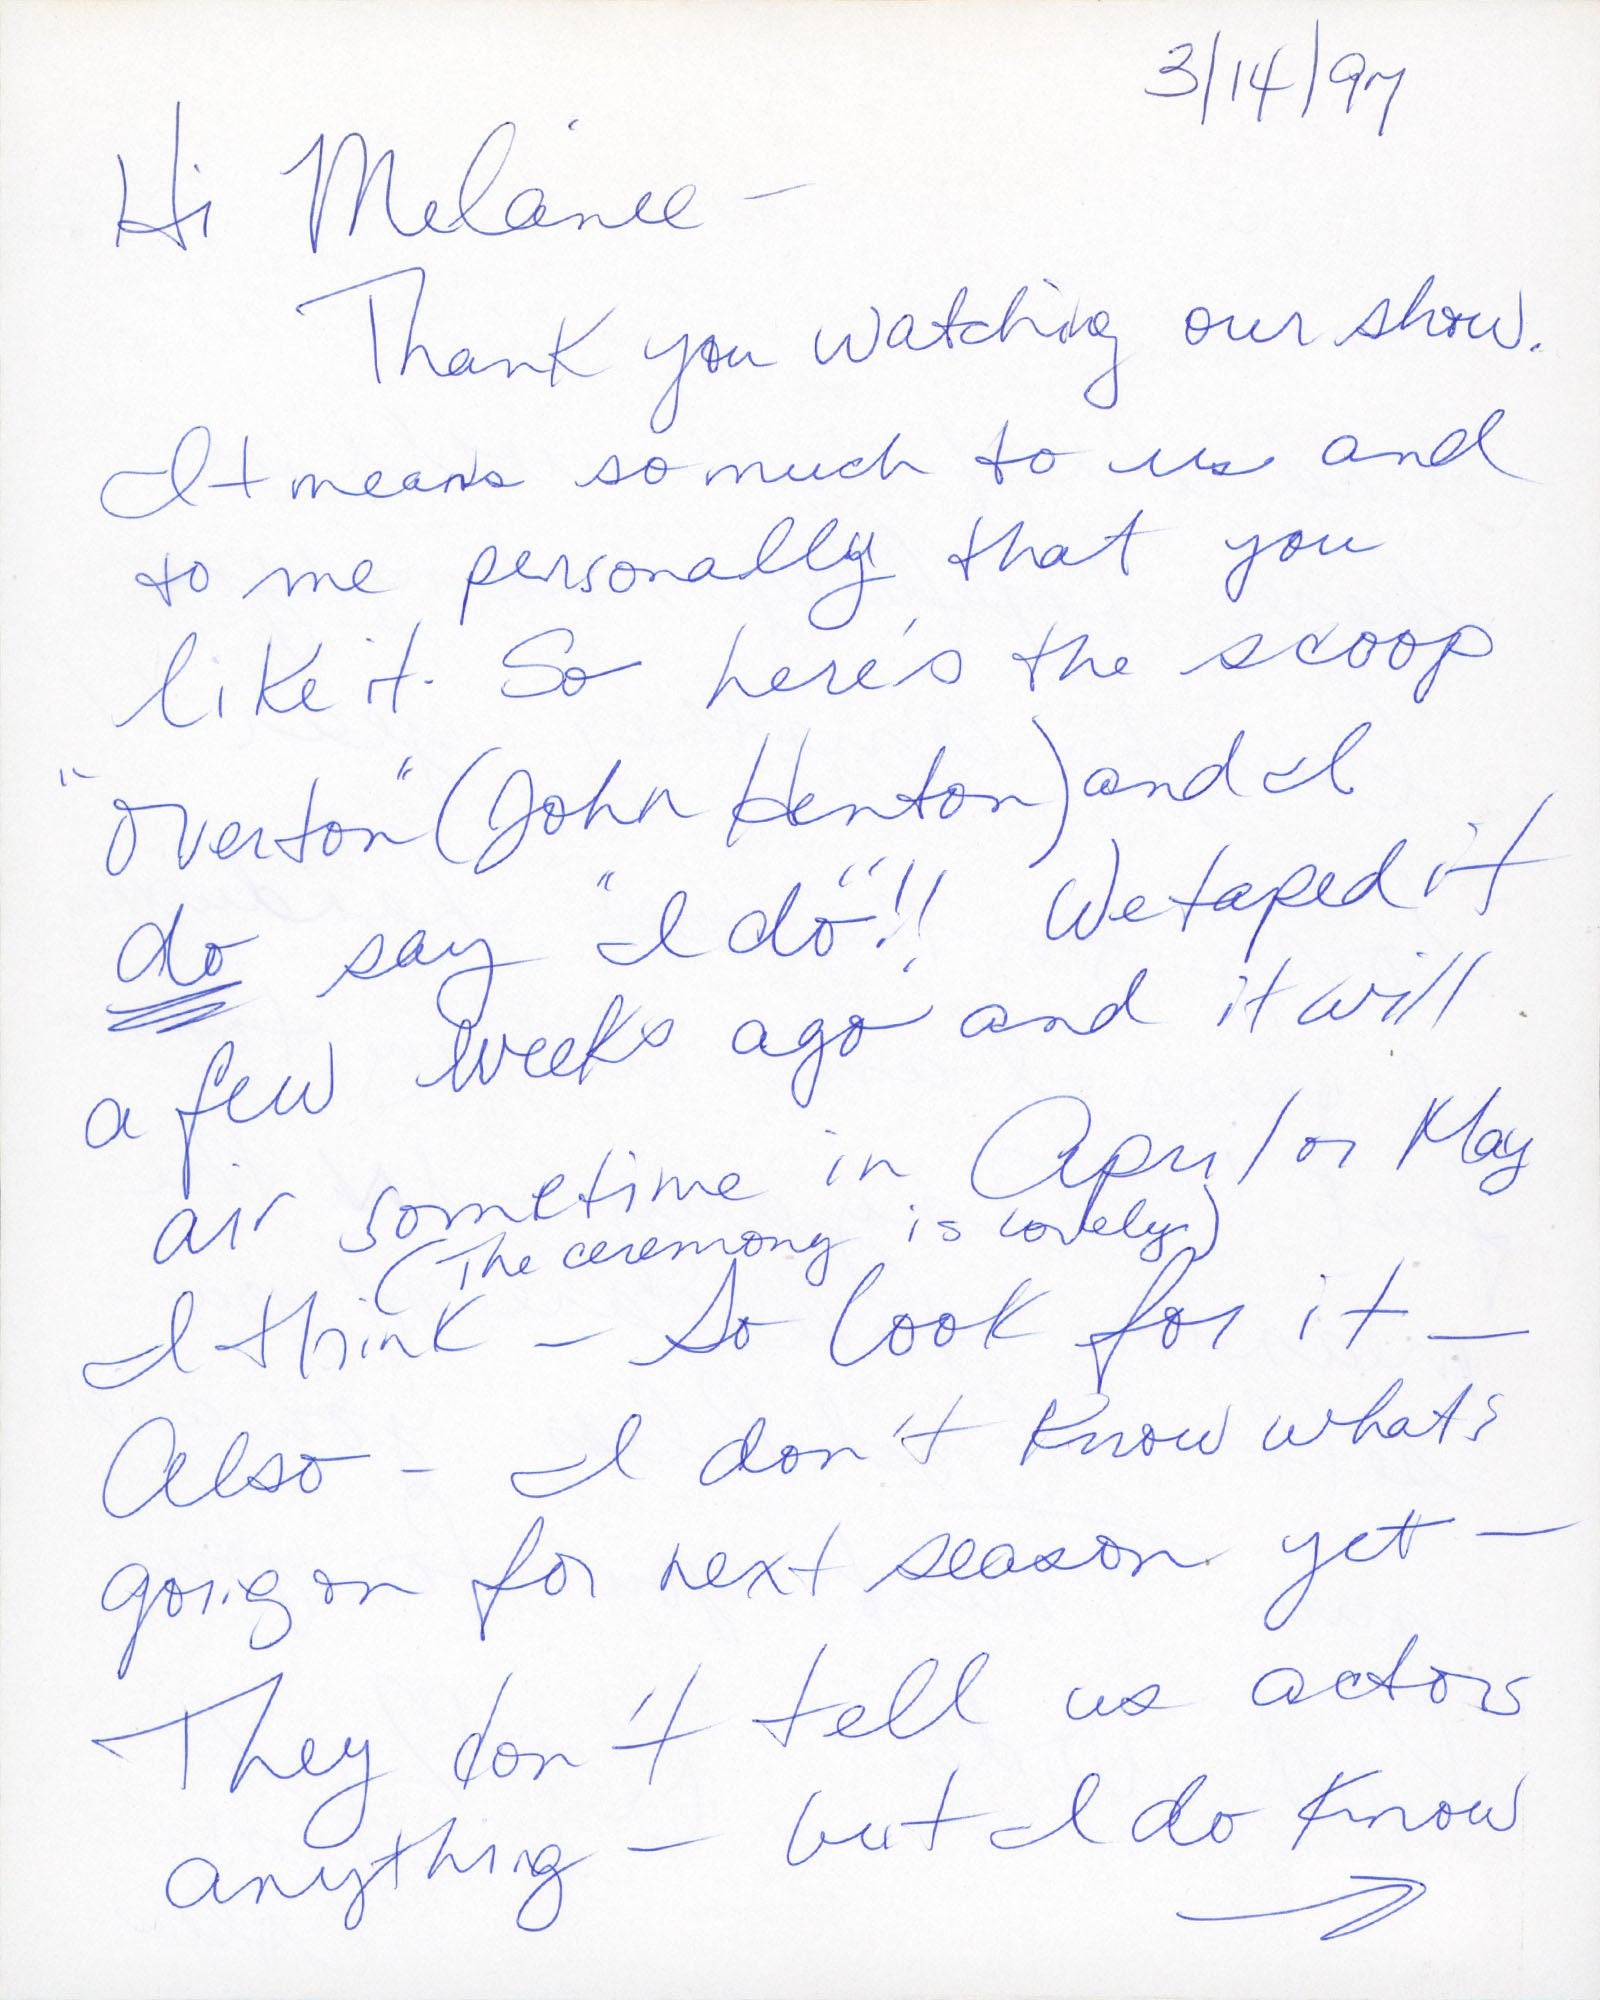 3/14/97
Hi Melanie -
Thank you watching our show.
It means so much to us and
to me personally that you
like it. So here's the scoop
"Overton" (John Henton) and I
do say "I do"!! We taped it
a few weeks ago and it will
air sometime in April or May
(The ceremony is lovely)
I think - So look for it -
Also - I don't know what's
going on for next season yet -
They don't tell us actors
anything - but I do know
→